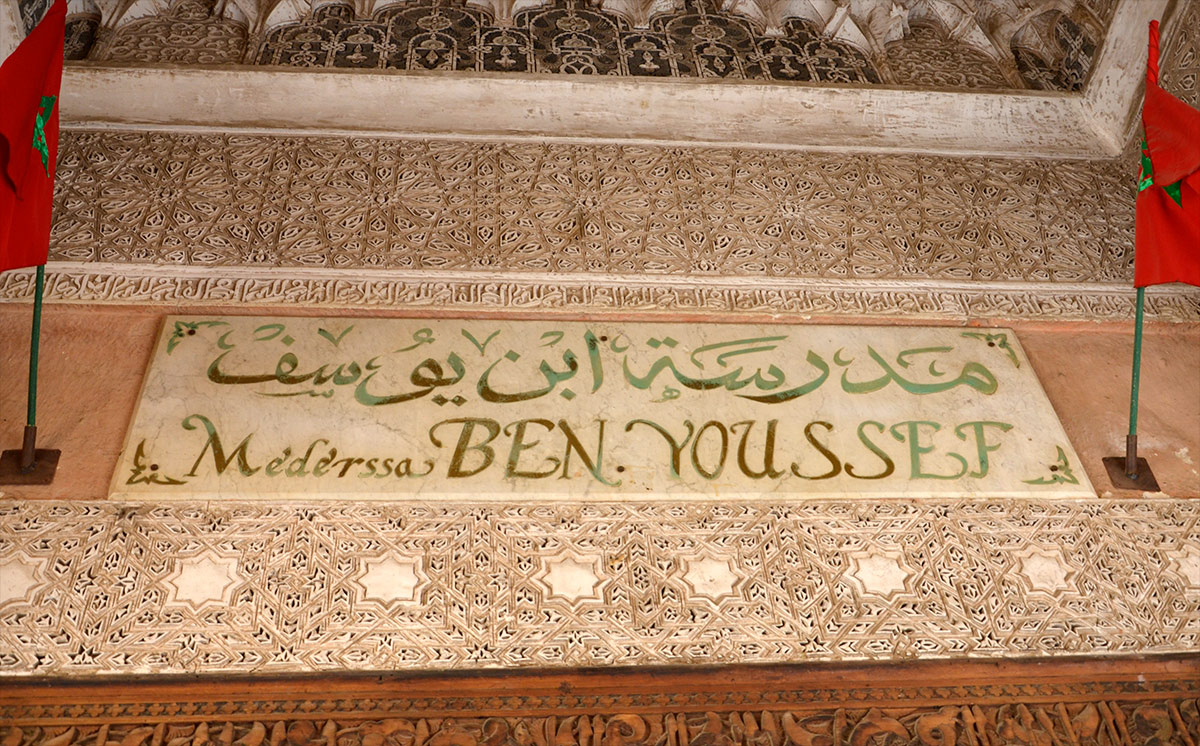 مدرسة ابن يوسف
Médérssa BEN.YOUSSEF